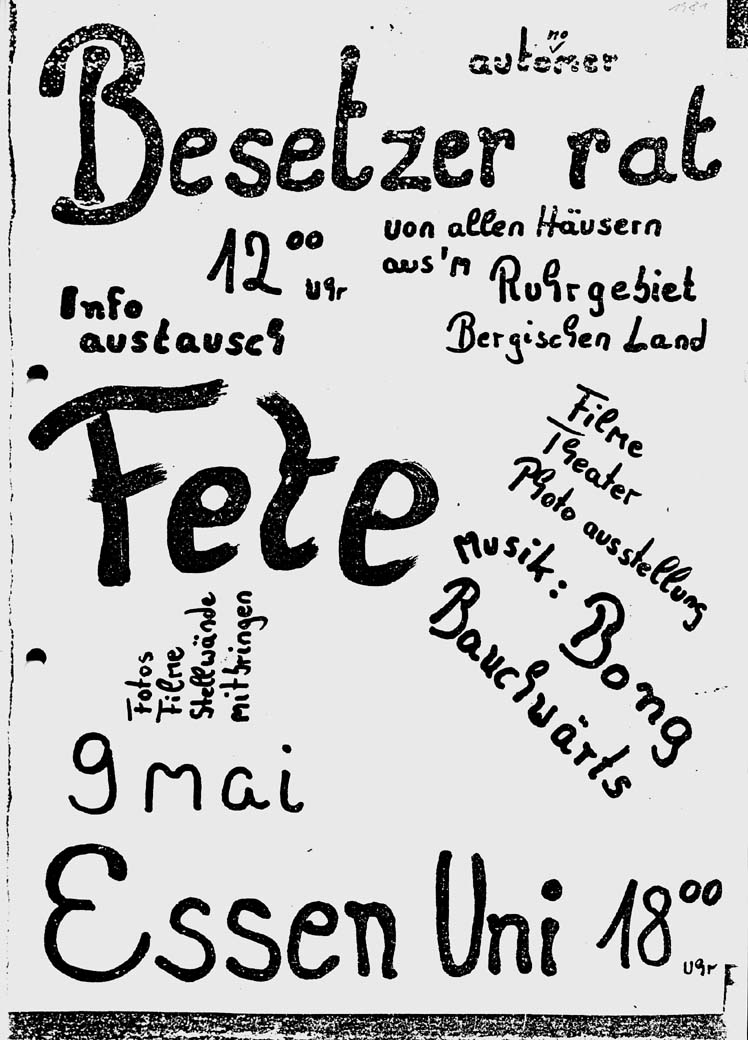 1981
no
autómer
Besetzer rat
12 00 uhr
von allen Häusern
aus'm Ruhrgebiet
Bergischen Land
Info
austausch
Fete
Filme
Theater
Photo ausstellung
Musik: Bong
Bauchwärts
Fotos
Filme
Stellwände
mitbringen
9 mai
Essen Uni 18 00 uhr